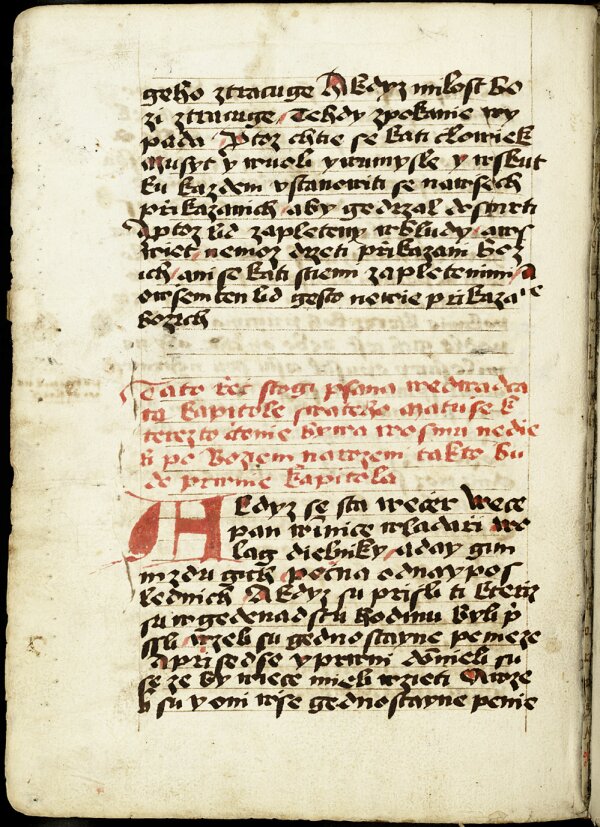 geho ztracuge A kdyz milost bo
zi ztracuge Tehdy zpokanie wy
pada A ptoz chtie se kati cżlowiek
musyt y wwoli ywumysle y wskut
ku kazdem vstanowiti se nawsech
přikazanich aby gedrzal dosmrti
A ptoz lid zapleteny wbludy aws
wiet nemoz drzeti přikazani boz
ich ani se kati stiemi zapletenimi A
owsem ten lid gesto newie přikaza
bozich
Tato řeč stogi psana wedwadca
te kapitole swateho Matuse k
terezto čtenie bywa wosmu nedie
li po Bozem narozeni takto bu
de prwnie kapitola
A kdyz se sta wečer wece
pan winnice wladari wo
lag dielniky aday gim
mzdu gich počna odnaypos
lednich A kdyz su prisli ti kteriz
su wgedenadstu hodinu byli př
ssli wzeli su gednostayne penieze
A prisedse y prwni domieli su
se ze by wiece mieli wzieti A wze
li su y oni wse gednostayne penie